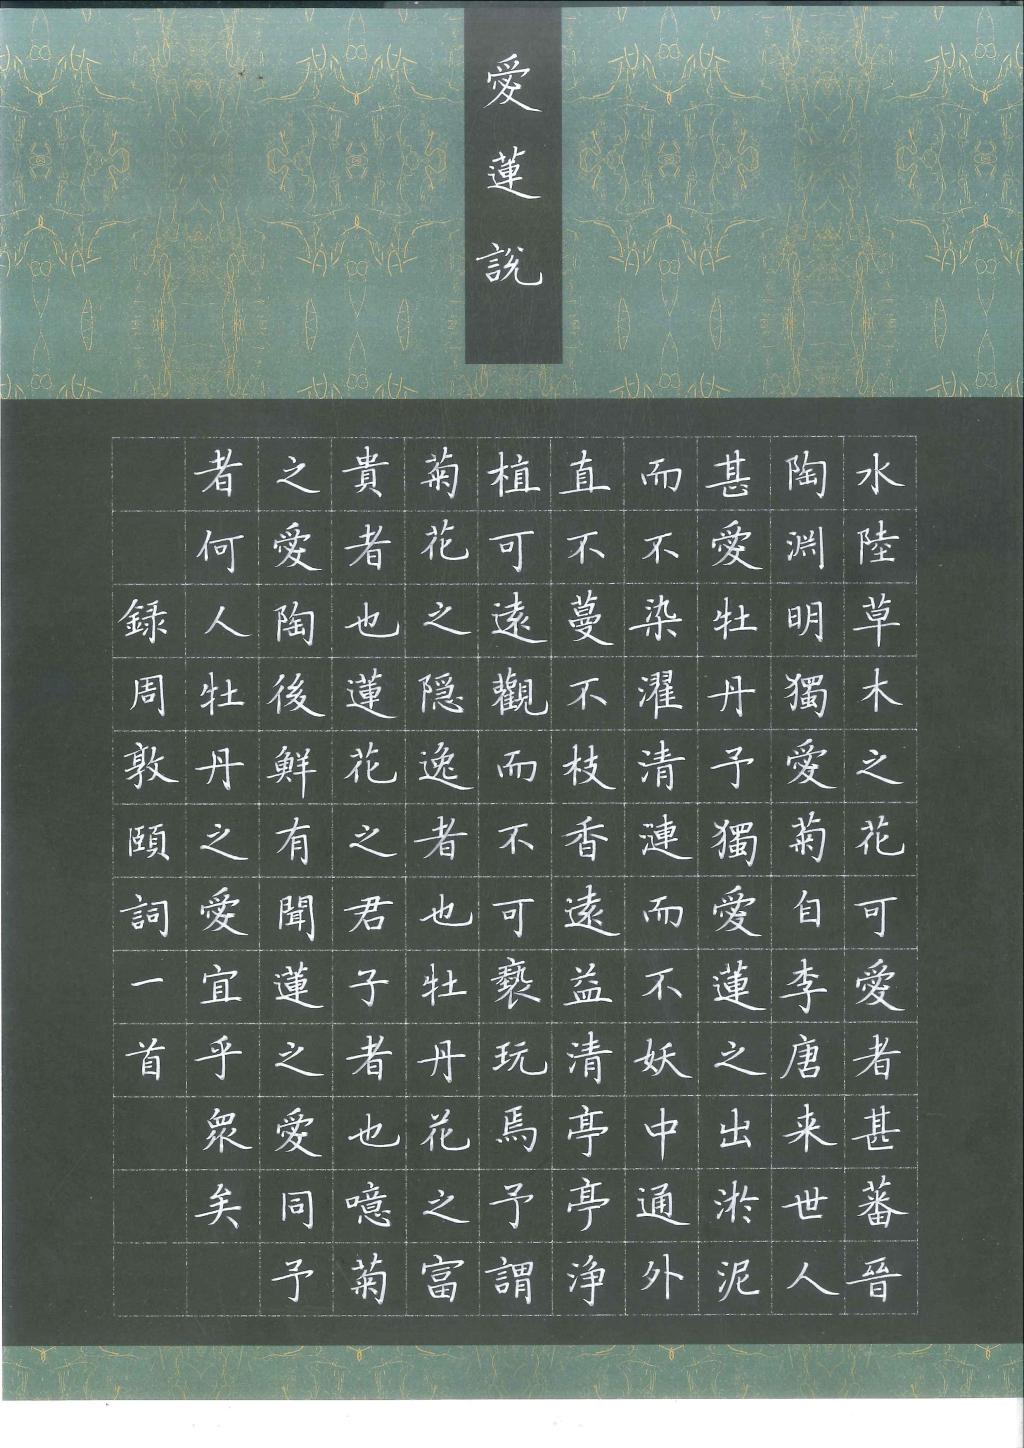 愛蓮說
水陸草木之花可愛者甚蕃晉
陶渊明獨愛菊自李唐来世人
甚愛牡丹予獨愛蓮之出淤泥
而不染濯清漣而不妖中通外
直不蔓不枝香遠益清亭亭浄
植可遠觀而不可褻玩焉予謂
菊花之隠逸者也牡丹花之富
貴者也蓮花之君子者也噫菊
之愛陶後鮮有聞蓮之愛同予
者何人牡丹之愛宜乎衆矣
録周敦頤詞一首